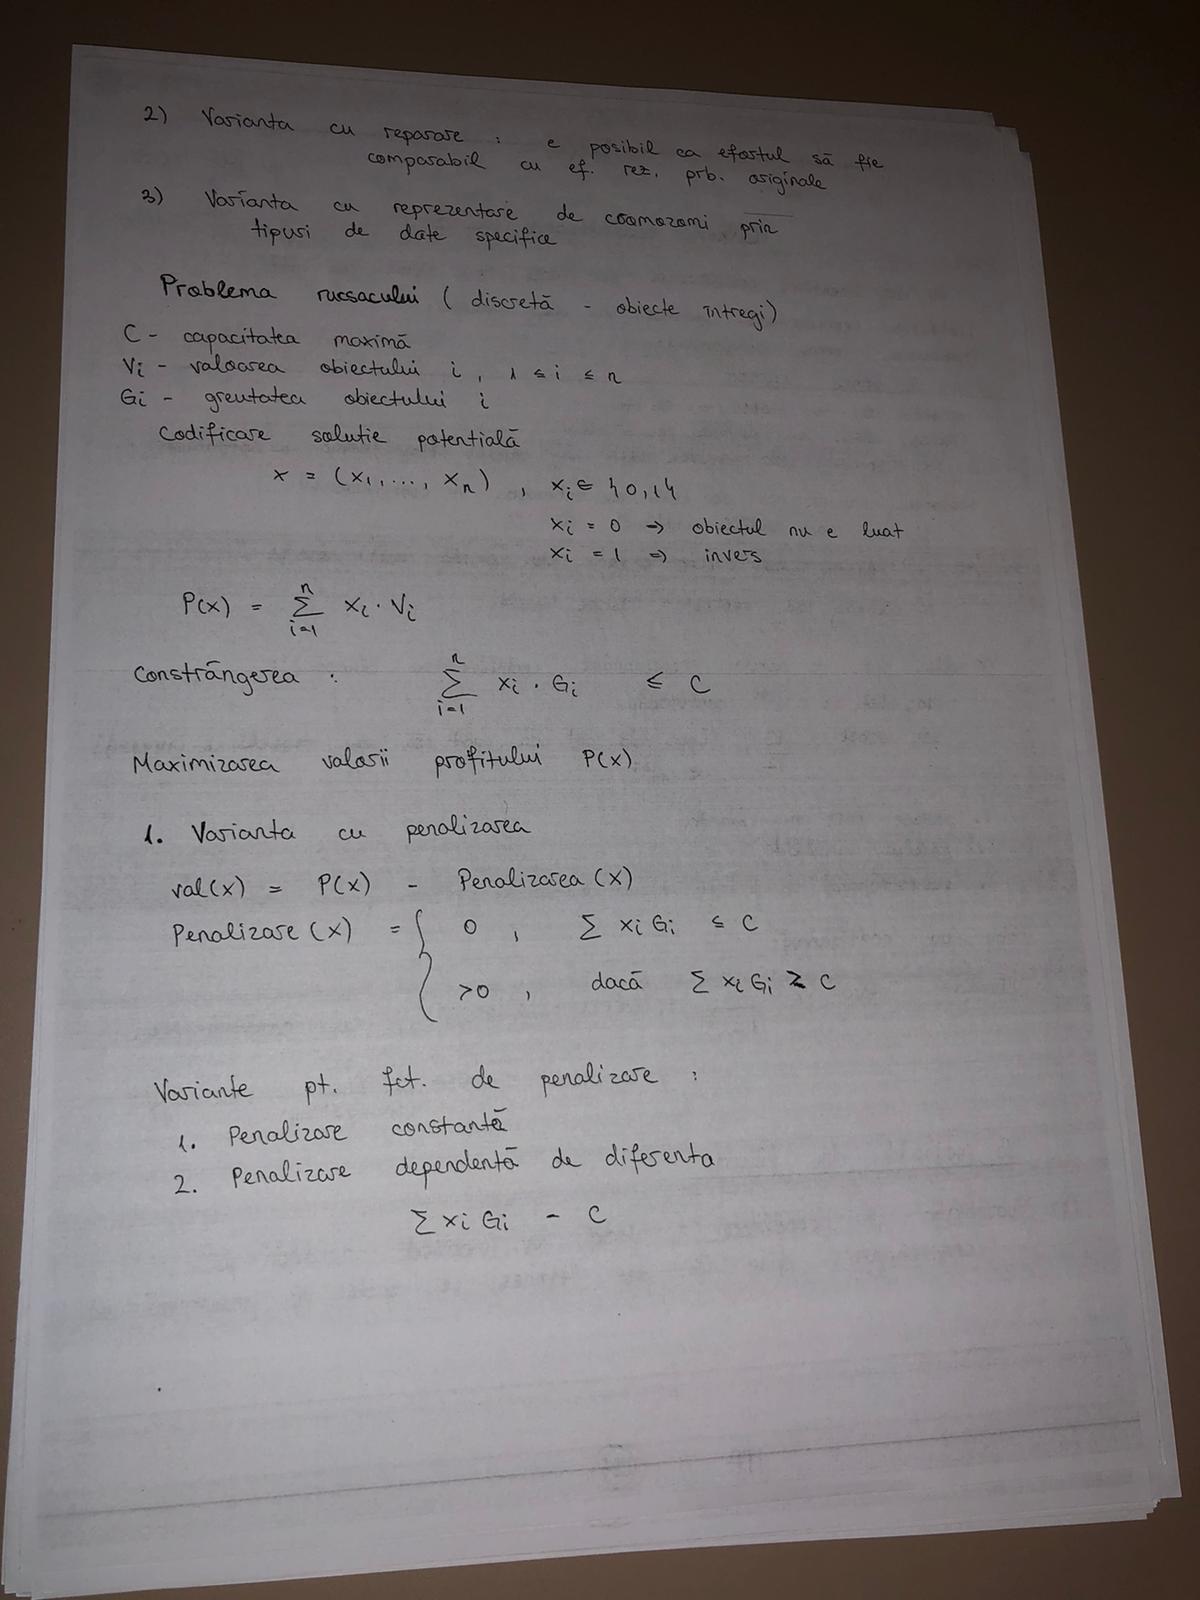 2) Varianta cu reparare : e posibil ca efortul să fie
comparabil cu ef. rez. prb. originale
3) Varianta cu reprezentare de cromozomi prin
tipuri de date specifice
Problema rucsacului ( discretă - obiecte întregi)
C - capacitatea maximă
Vi - valoarea obiectului i, 1 ≤ i ≤ n
Gi - greutatea obiectului i
Codificare solutie potentială
x = (x1, ..., xn) , xi ∈ {0,1}
xi = 0 → obiectul nu e luat
xi = 1 ⇒ invers
P(x) = n∑i=1 xi · Vi
Constrângerea : n∑i=1 xi · Gi ≤ C
Maximizarea valorii profitului P(x)
1. Varianta cu penalizarea
val(x) = P(x) - Penalizarea (x)
Penalizare (x) = { 0 , ∑ xi Gi ≤ C
>0 , dacă ∑ xi Gi > C
Variante pt. fct. de penalizare :
1. Penalizare constantă
2. Penalizare dependentă de diferenta
∑ xi Gi - C